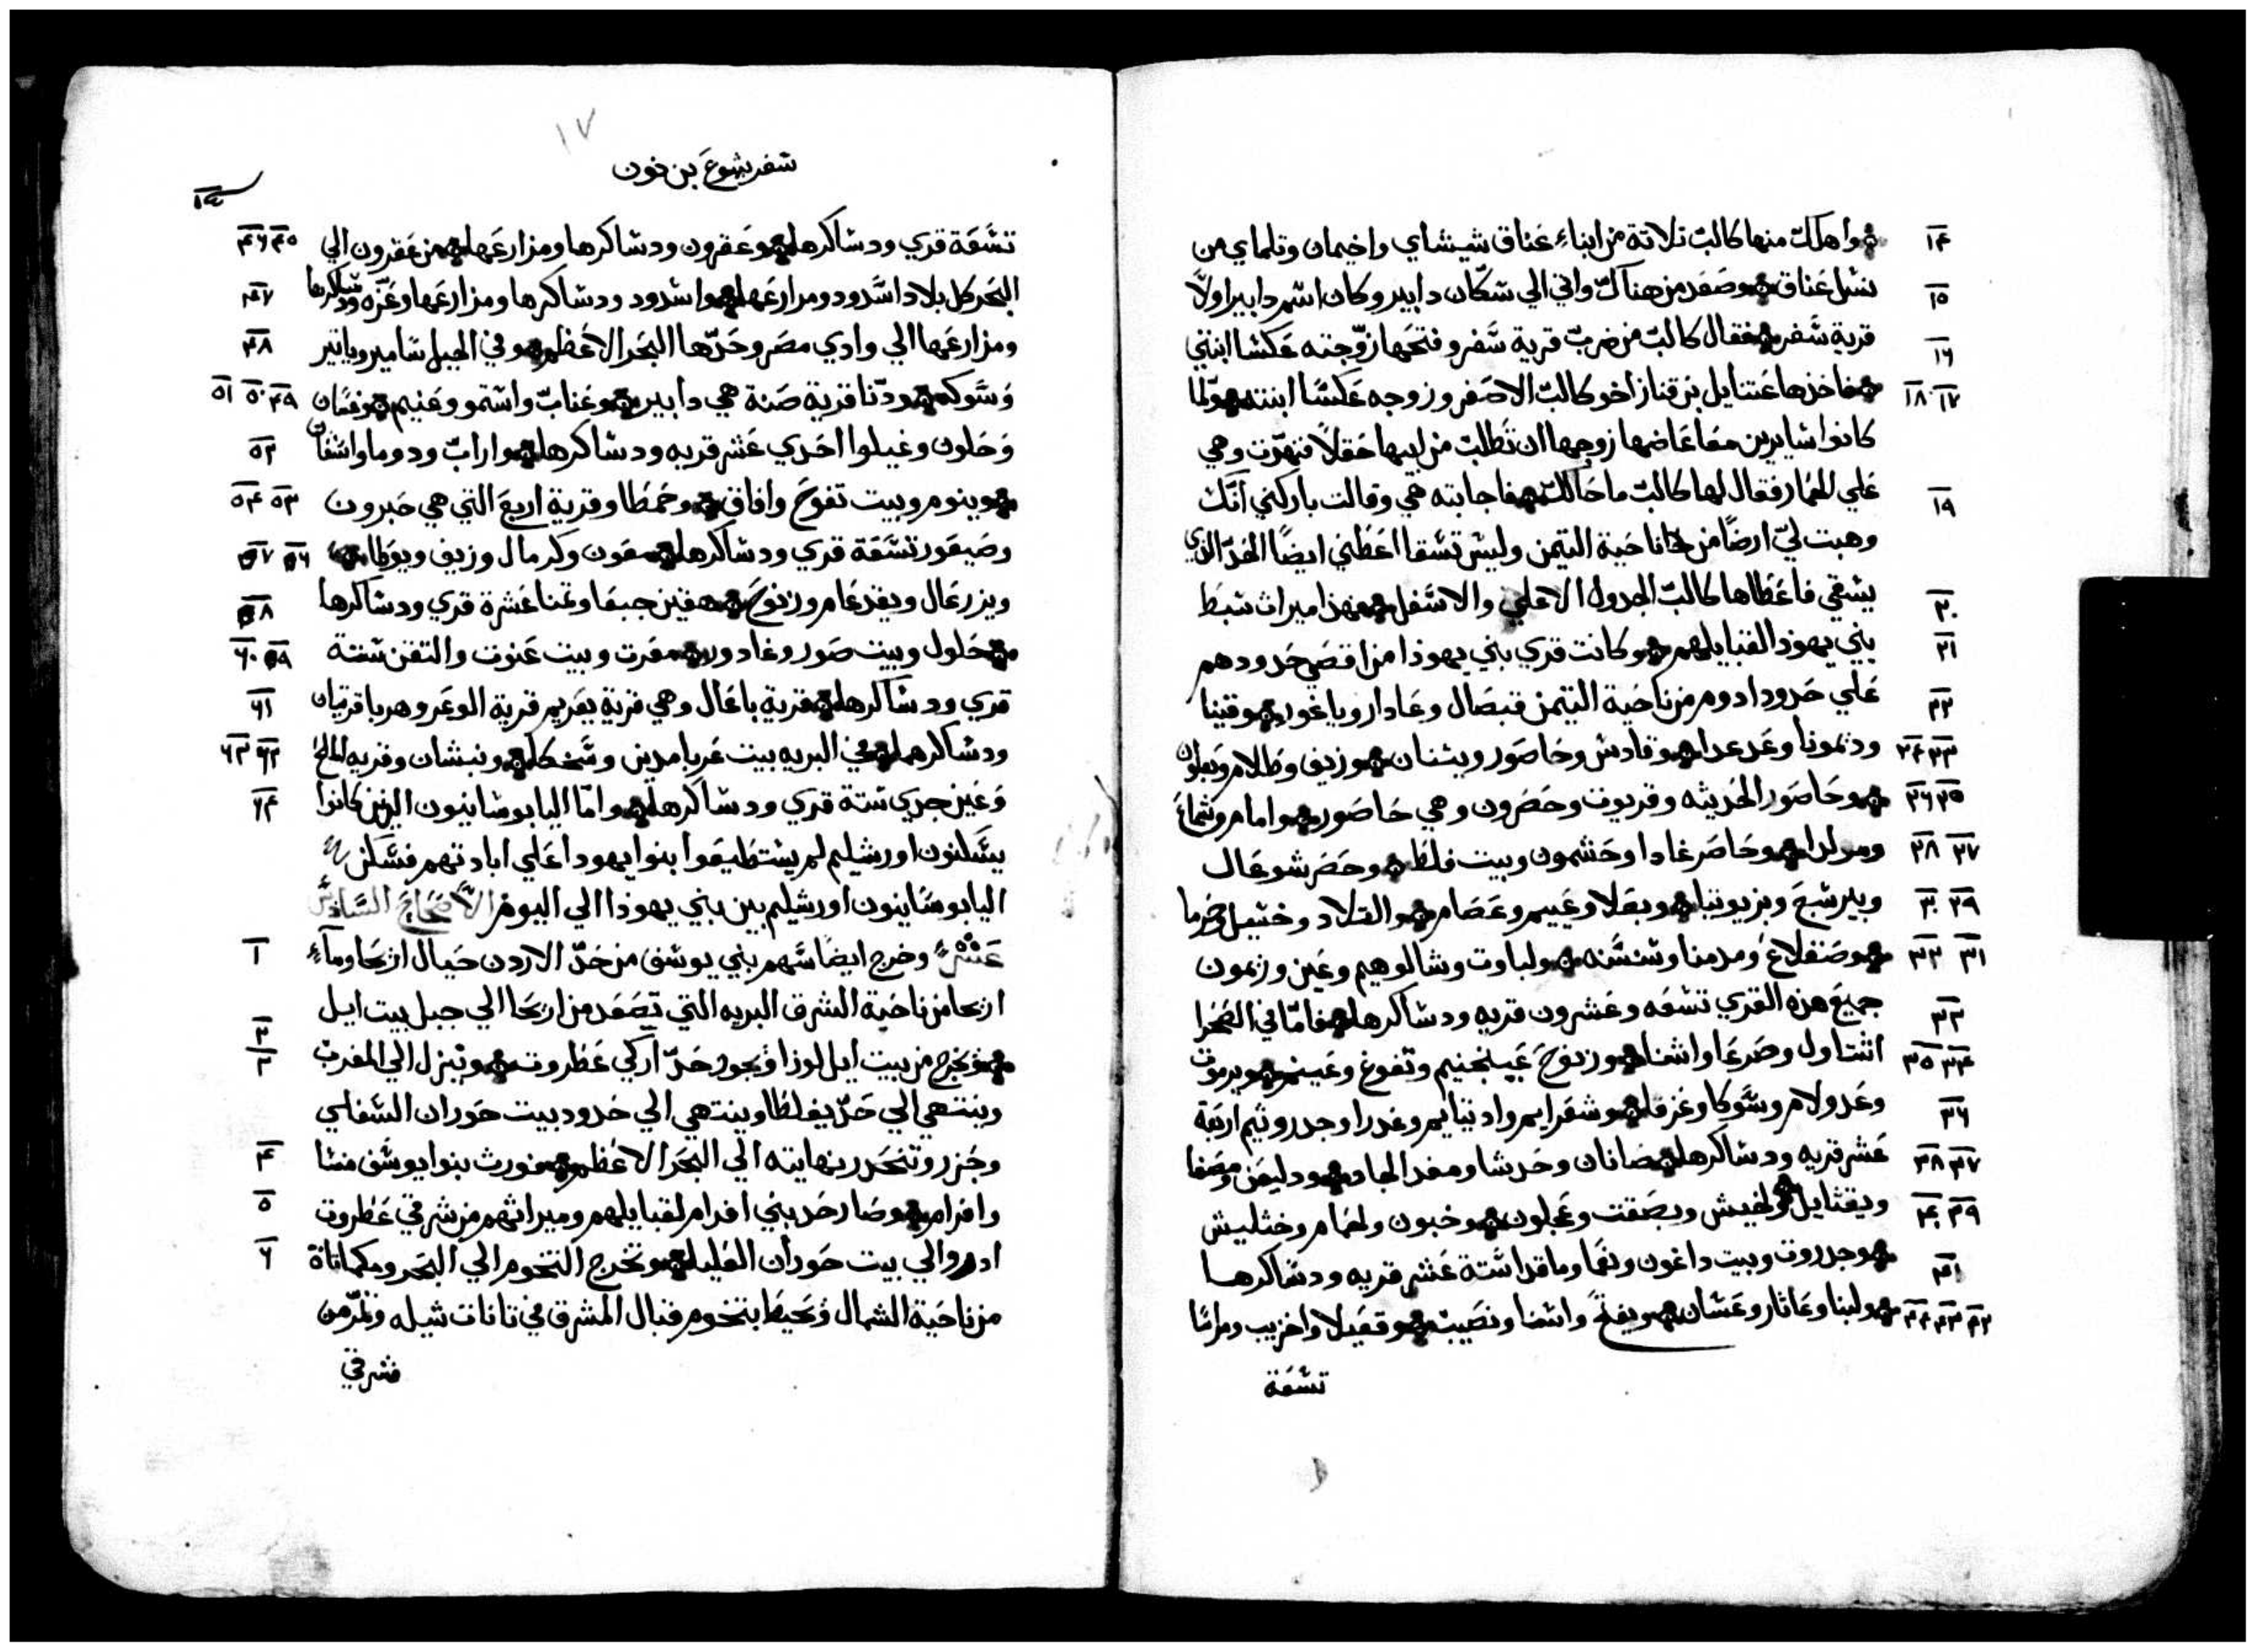 ١٤ واهلك منها كالب تلاتة من ابناء عناق شيشاي واخيمان وتلماي من
١٥ نسل عناق وصعد من هناك واتي الي سكان دابير وكان اسم دابير اولاً
١٦ قرية سفر فقال كالب من ضرب قرية سفر وفتحها زوجته عكسا ابنتي
١٧ ١٨ فاخذها عتنايل بن قناز اخو كالب الاصغر وزوجه عكسا ابنته ولما
كانوا سايرين معا غاضها زوجها ان تطلب من ابيها حقلاً فتنهدت وهي
١٩ علي الحمار فقال لها كالب ما حالك فاجابته هي وقالت باركني انك
وهبت لي ارضًا من ناحية التيمن وليس تسقا اعطني ايضًا الحد الذي
يسقي فاعطاها كالب الجدول الاعلي والاسفل
٢٠ فهذا ميراث سبط
٢١ بني يهوذا لقبايلهم وكانت قري بني يهوذا من اقصي حدودهم
٢٢ علي حدود ادوم من ناحية التيمن قبصال وعادار وياغور وقينا
٢٣ ٢٤ وديمونا وعدعدا وقادس وحاصور ويثنان وزيف وطالام وبعلوت
٢٥ ٢٦ وحاصور الحديثه وقريوت وحصرون وهي حاصور وامام وشماع
٢٧ ٢٨ ومولدا وحاصر غادا وحشمون وبيت فلط وحصر شوعال
٢٩ ٣٠ وبير شبع وبزيوتيا وبعلا وعييم وعصام والقلاد وخشيل وحرما
٣١ ٣٢ وصقلاغ ومدمنا وسنسنه ولباوت وشالوهيم وعين ورمون
جميع هذه القري تسعه وعشرون قريه ودساكرها
٣٣ فاما في الصحرا
٣٤ ٣٥ اشتاول وصرعا واشنا وزنوح وعينجنيم وتفوع وعينم ويرموت
وعدولام وسوكا وعزقا
٣٦ وشعرايم واديتايم وغدرا وجدروتيم اربعة
٣٧ ٣٨ عشر قريه ودساكرها صانان وحدشا ومغدالجاد ودليعن ومصفا
٣٩ ٤٠ ويقتايل ولخيش وبصقت وعجلون وخبون ولحمام وختليش
٤١ وجدروت وبيت داغون ونعما وماقدا ستة عشر قريه ودساكرها
٤٢ ٤٣ ٤٤ ولبنا وعاثار وعشان ويفتح واشنا ونصيب وقعيلا واخزيب ومراسا
تسعة
١٧
سفر يشوع بن نون
٤٥ ٤٦ تسعة قري ودساكرها وعقرون ودساكرها ومزارعها من عقرون الي
٤٧ البحر كل بلاد اسدود ومزارعها واسدود ودساكرها ومزارعها وغزه ودساكرها
٤٨ ومزارعها الي وادي مصر وحدها البحر الاعظم وفي الجبل شامير وياتير
٤٩ ٥٠ ٥١ وسوكه ودنا قرية صنة هي دابير وعناب واشتمو وعنيم وغسان
٥٢ وحلون وغيلوا احدي عشر قريه ودساكرها واراب ودوما واشعان
٥٣ ٥٤ وينوم وبيت تفوح وافاق وحمطا وقرية اربع التي هي حبرون
وصيعور تسعة قري ودساكرها معون وكرمال وزيف ويوطا
٥٦ ٥٧ ويزرعال ويقدعام وزنوح وهقين جبعا وتمنا عشرة قري ودساكرها
٥٨
٥٩ ٦٠ حلول وبيت صور وغادور ومعرت وبيت عنوت والتقن ستة
٦١ قري ودساكرها قرية باعال وهي قرية يعريم قرية الوعر وهربا قريتان
٦٢ ٦٣ ودساكرهما في البريه بيت عربا مدين وسخكا ونبشان وقريه الملح
وعين جدي ستة قري ودساكرها
٦٤ واما اليابوسانيون الذين كانوا
يسكنون اورشليم لم يستطيعوا بنوا يهودا علي ابادتهم فسكن
اليابوسانيون اورشليم بين بني يهوذا الي اليوم الأصحاح السادس
١ عشر وخرج ايضًا سهم بني يوسف من حد الاردن حيال اريحا وماء
اريحا من ناحية الشرق البريه التي تصعد من اريحا الي جبل بيت ايل
٢ ٣ وتخرج من بيت ايل لوزا وتجوز حد اركي عطاروت وتنزل الي المغرب
وينتهي الي حد يفلطا وينتهي الي حدود بيت حوران السفلي
٤ وجزر وتنحدر بنهايته الي البحر الاعظم فورث بنوا يوسف منسا
٥ وافرام وصار حد بني افرام لقبايلهم وميراثهم من شرقي عطروت
٦ ادر والي بيت حوران العليا وتخرج التخوم الي البحر ومكماتاة
من ناحية الشمال وتحيط بتخوم قبال المشرق في تانات شيله وتمر من
شرقي